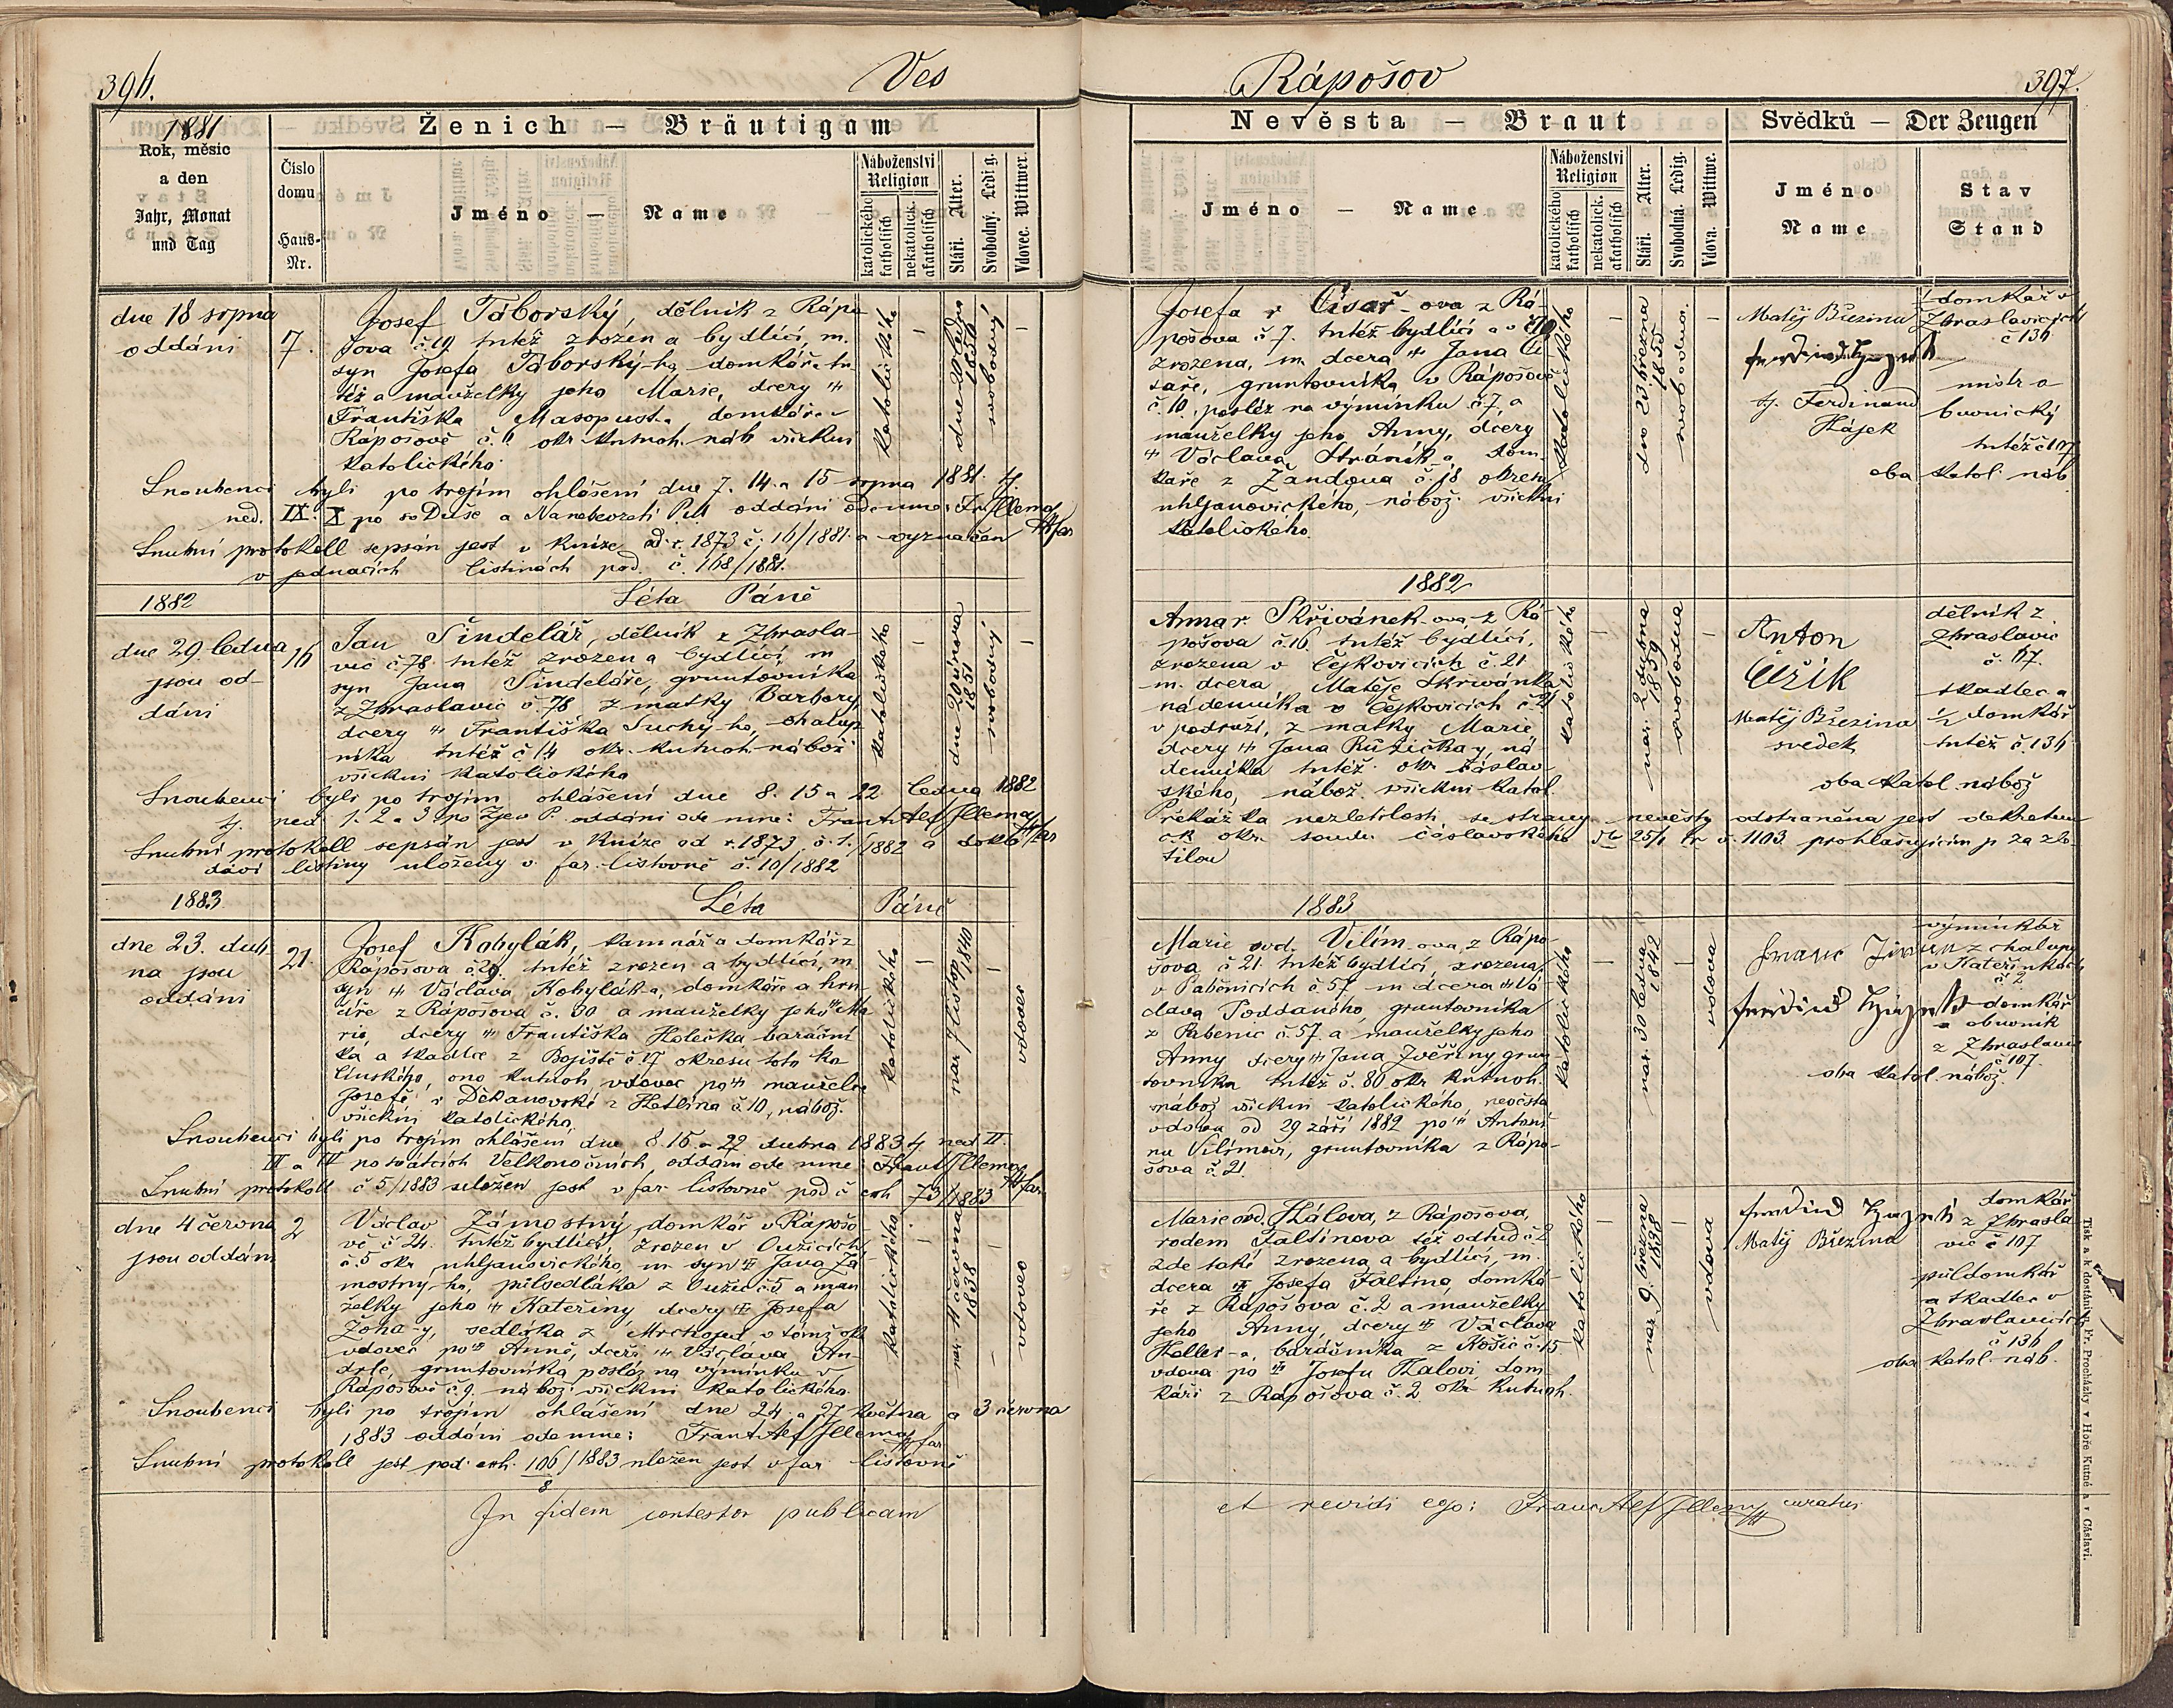 396.
Ves
1881
Rok, měsíc
a den
Jahr, Monat
und Tag
Číslo
domu
Haus-
Nr.
Ženich — Bräutigam
Jméno — Name
Náboženství
Religion
katolického
katholisch
nekatolick.
akatholisch
Stáří. Alter.
Svobodný. Ledig.
Vdovec. Wittwer.
dne 18 srpna
oddáni
7.
Josef Táborský, dělník z Rápo-
šova č 19 tutéž zrozen a bydlící, m.
syn Josefa Táborský-ho, domkáře tu-
též a manželky jeho Marie, dcery
Františka Masopust-a domkáře v
Rápošově č. 6 okr. kutnoh. náb všickni
katolického
katolického
—
dne 20 ledna
1856
svobodný
—
Snoubenci byli po trojím ohlášení dne 7. 14. a 15 srpna 1881. tj.
ned. IX. X po sv Duše a Nanebevzetí P. M oddáni ode mne: Fr. Jllemy
Snubní protokoll sepsán jest v knize od r. 1873 č. 16/1881. a vyznačen
v jednacích listinách pod. č. 168/1881.
1882
Léta Páně
dne 29. ledna
jsou od-
dáni
16
Jan Šindelář, dělník z Zbrasla-
vic č. 78. tutéž zrozen a bydlící, m
syn Jana Šindeláře, gruntovníka
z Zbraslavic č. 78 z matky Barbory,
dcery Františka Suchý-ho, chalup-
níka tutéž č 14 okr. kutnoh. nábož
všickni katolického
katolického
—
dne 20 února
1851
svobodný
—
Snoubenci byli po trojím ohlášení dne 8. 15 a 22 ledna 1882
tj. ned. 1. 2. a 3 po Zjev P. oddáni ode mne: Frant Alf Jllemy
Snubní protokoll sepsán jest v knize od r. 1873 č. 1./1882 a dokla-
dací listiny uloženy v far. listovně č. 10/1882
1883
Léta Páně
dne 23. dub-
na jsou
oddáni
21.
Josef Kobylák, kamnář a domkář z
Rápošova č 29. tutéž zrozen a bydlící, m.
syn Václava Kobylák-a, domkáře a hrn-
číře z Rápošova č. 30 a manželky jeho Ma-
rie, dcery Františka Holečka baráční-
ka a tkadlce z Bojiště č 17 okresu toto ko-
línského, ono kutnoh, vdovec po manželce
Josefě r Děkanovské z Hetlína č 10, nábož.
všickni katolického
katolického
—
nar 7 listop 1840
—
vdovec
Snoubenci byli po trojím ohlášení dne 8. 15. a 22 dubna 1883 tj ned II.
III a IV po svátcích Velkonočních, oddáni ode mne: Frant Jllemy
Snubní protokoll č 5/1883 uložen jest v far listovně pod č exh 73/1883
dne 4 června
jsou oddáni
2
Václav Zámostný, domkář v Rápošo-
vě č 24. tutéž bydlící, zrozen v Ouzicích
č. 5 okr uhljanovického, m. syn Jana Zá-
mostný-ho, půlsedláka z Oužic č 5 a man-
želky jeho Kateřiny dcery Josefa
Žoha-y, sedláka z Mrchojed v tomž okr
vdovec po Anně, dceři Václava An-
drle, gruntovníka posléz na výmínku v
Rápošově č 9. nábož všickni katolického.
katolického
—
nar. 11 června
1838
—
vdovec
Snoubenci byli po trojím ohlášení dne 24. a 27 května a 3 června
1883 oddáni ode mne: Frant Alf Jllemy
far
Snubní protokoll jest pod exh. 106/1883 uložen jest v far listovně
8
In fidem contestor publicam
Rápošov
397.
Nevěsta — Braut
Svědků — Der Zeugen
Jméno — Name
Náboženství
Religion
katolického
katholisch
nekatolick.
akatholisch
Stáří. Alter.
Svobodná. Ledig.
Vdova. Wittwe.
Jméno
Name
Stav
Stand
Josefa r Císař-ova z Rá-
pošova č 7. tutéž bydlící a v č 10
zrozena, m. dcera Jana Cí-
saře, gruntovníka v Rápošově
č. 10, posléz na výmínku č 7, a
manželky jeho Anny, dcery
Václava Stráník-a, dom-
káře z Žandova č. 18 okresu
uhljanovického, nábož. všickni
katolického.
katolického
—
dne 23 března
1855
svobodna.
—
Matěj Březina
tj. Ferdinand
Hájek
½ domkář v
Zbraslavicích
č 136
mistr o-
buvnický
tutéž č 107
oba katol náb
1882
Anna r Skřivánek-ova z Rá-
pošova č. 16 tutéž bydlící,
zrozena v Čejkovicích č. 21
m. dcera Matěje Skřivánka
nádenníka v Čejkovicích č. 21
v podruží, z matky Marie,
dcery Jana Růžička-y, ná-
denníka tutéž. okr čáslav-
ského, nábož. všickni katol.
katolického
—
nar. 2 dubna
1859
svobodna
—
Anton
Čížik
Matěj Březina
svedek
dělník z
Zbraslavic
č. 67.
tkadlec a
½ domkář
tutéž č. 136
oba katol nábož
Překážka nezletilosti se strany nevěsty odstraněna jest dekretem
ck okr. soudu čáslavského 25/1 č. 1103 prohlašujícím ji za zle-
tilou
1883
Marie ovd. Vilím-ova, z Rápo-
šova č 21 tutéž bydlící, zrozena
v Paběnicích č 57 m dcera Vá-
clava Poddaného, gruntovníka
z Pabenic č. 57. a manželky jeho
Anny dcery Jana Zvěřiny grun-
tovníka tutéž č. 80 okr kutnoh.
nábož všickni katolického, nevěsta
vdova od 29 září 1882 po Antoní-
nu Vilímovi, gruntovníka z Rápo-
šova č. 21
katolického
—
nar. 30 ledna
1842
—
vdova
výminkář
z chalupy
v Kateřinkách
č. 2
domkář
a obuvník
z Zbraslavic
č 107.
oba katol. nábož.
Marie ovd. Hálova, z Rápošova,
rodem Faltinova též odtud č 2
zde také zrozena a bydlící, m.
dcera Josefa Faltina, domká-
ře z Rápošova č. 2 a manželky
jeho Anny, dcery Václava
Heller-a, baráčníka z Košic č. 15
vdova po Josefu Halovi, dom-
káři z Rápošova č. 2 okr Kutnoh.
katolického
—
nar. 9. března
1838
—
vdova
Matěj Březina
domkář
z Zbrasla-
vic č 107
půldomkář
a tkadlec v
Zbraslavicích
č 136
oba katol. náb.
et revidi ego: Franc Alf Jllemy curatus
Tisk a k dostání u Fr. Procházky v Hoře Kutné a v Čáslavi.